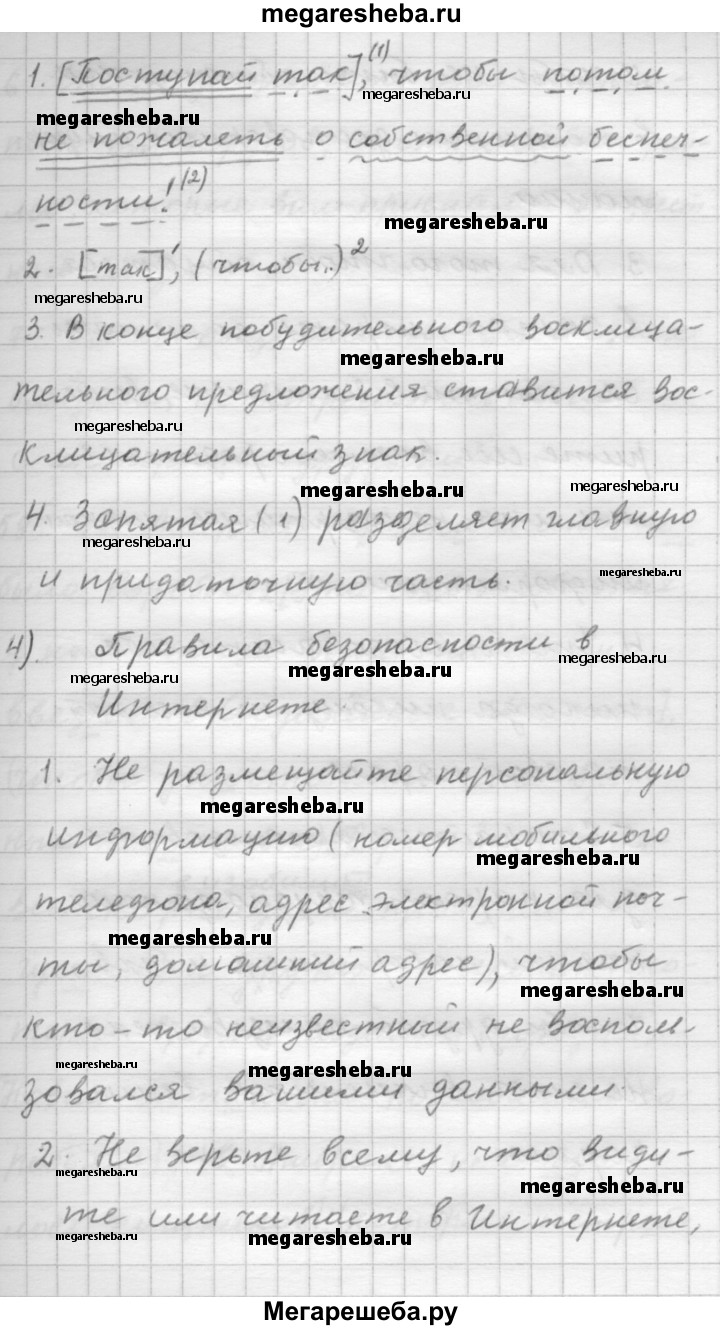 megaresheba.ru
1. [Поступай так],(1) чтобы потом
megaresheba.ru
megaresheba.ru
не пожалеть о собственной беспеч-
ности!(2)
megaresheba.ru
2. [так]', (чтобы..)2
megaresheba.ru
3. В конце побудительного восклица-
megaresheba.ru
тельного предложения ставится вос-
megaresheba.ru
клицательный знак.
megaresheba.ru
megaresheba.ru
4. Запятая (1) разделяет главную
megaresheba.ru
и придаточную часть.
megaresheba.ru
4). Правила безопасности в
megaresheba.ru
megaresheba.ru
Интернете.
1. Не размещайте персональную
megaresheba.ru
информацию (номер мобильного
megaresheba.ru
телефона, адрес электронной поч-
megaresheba.ru
ты, домашний адрес), чтобы
megaresheba.ru
кто-то неизвестный не воспол-
megaresheba.ru
megaresheba.ru
зовался вашими данными.
2. Не верьте всему, что види-
megaresheba.ru
megaresheba.ru
те или читаете в Интернете,
megaresheba.ru
megaresheba.ru
Мегарешеба.ру